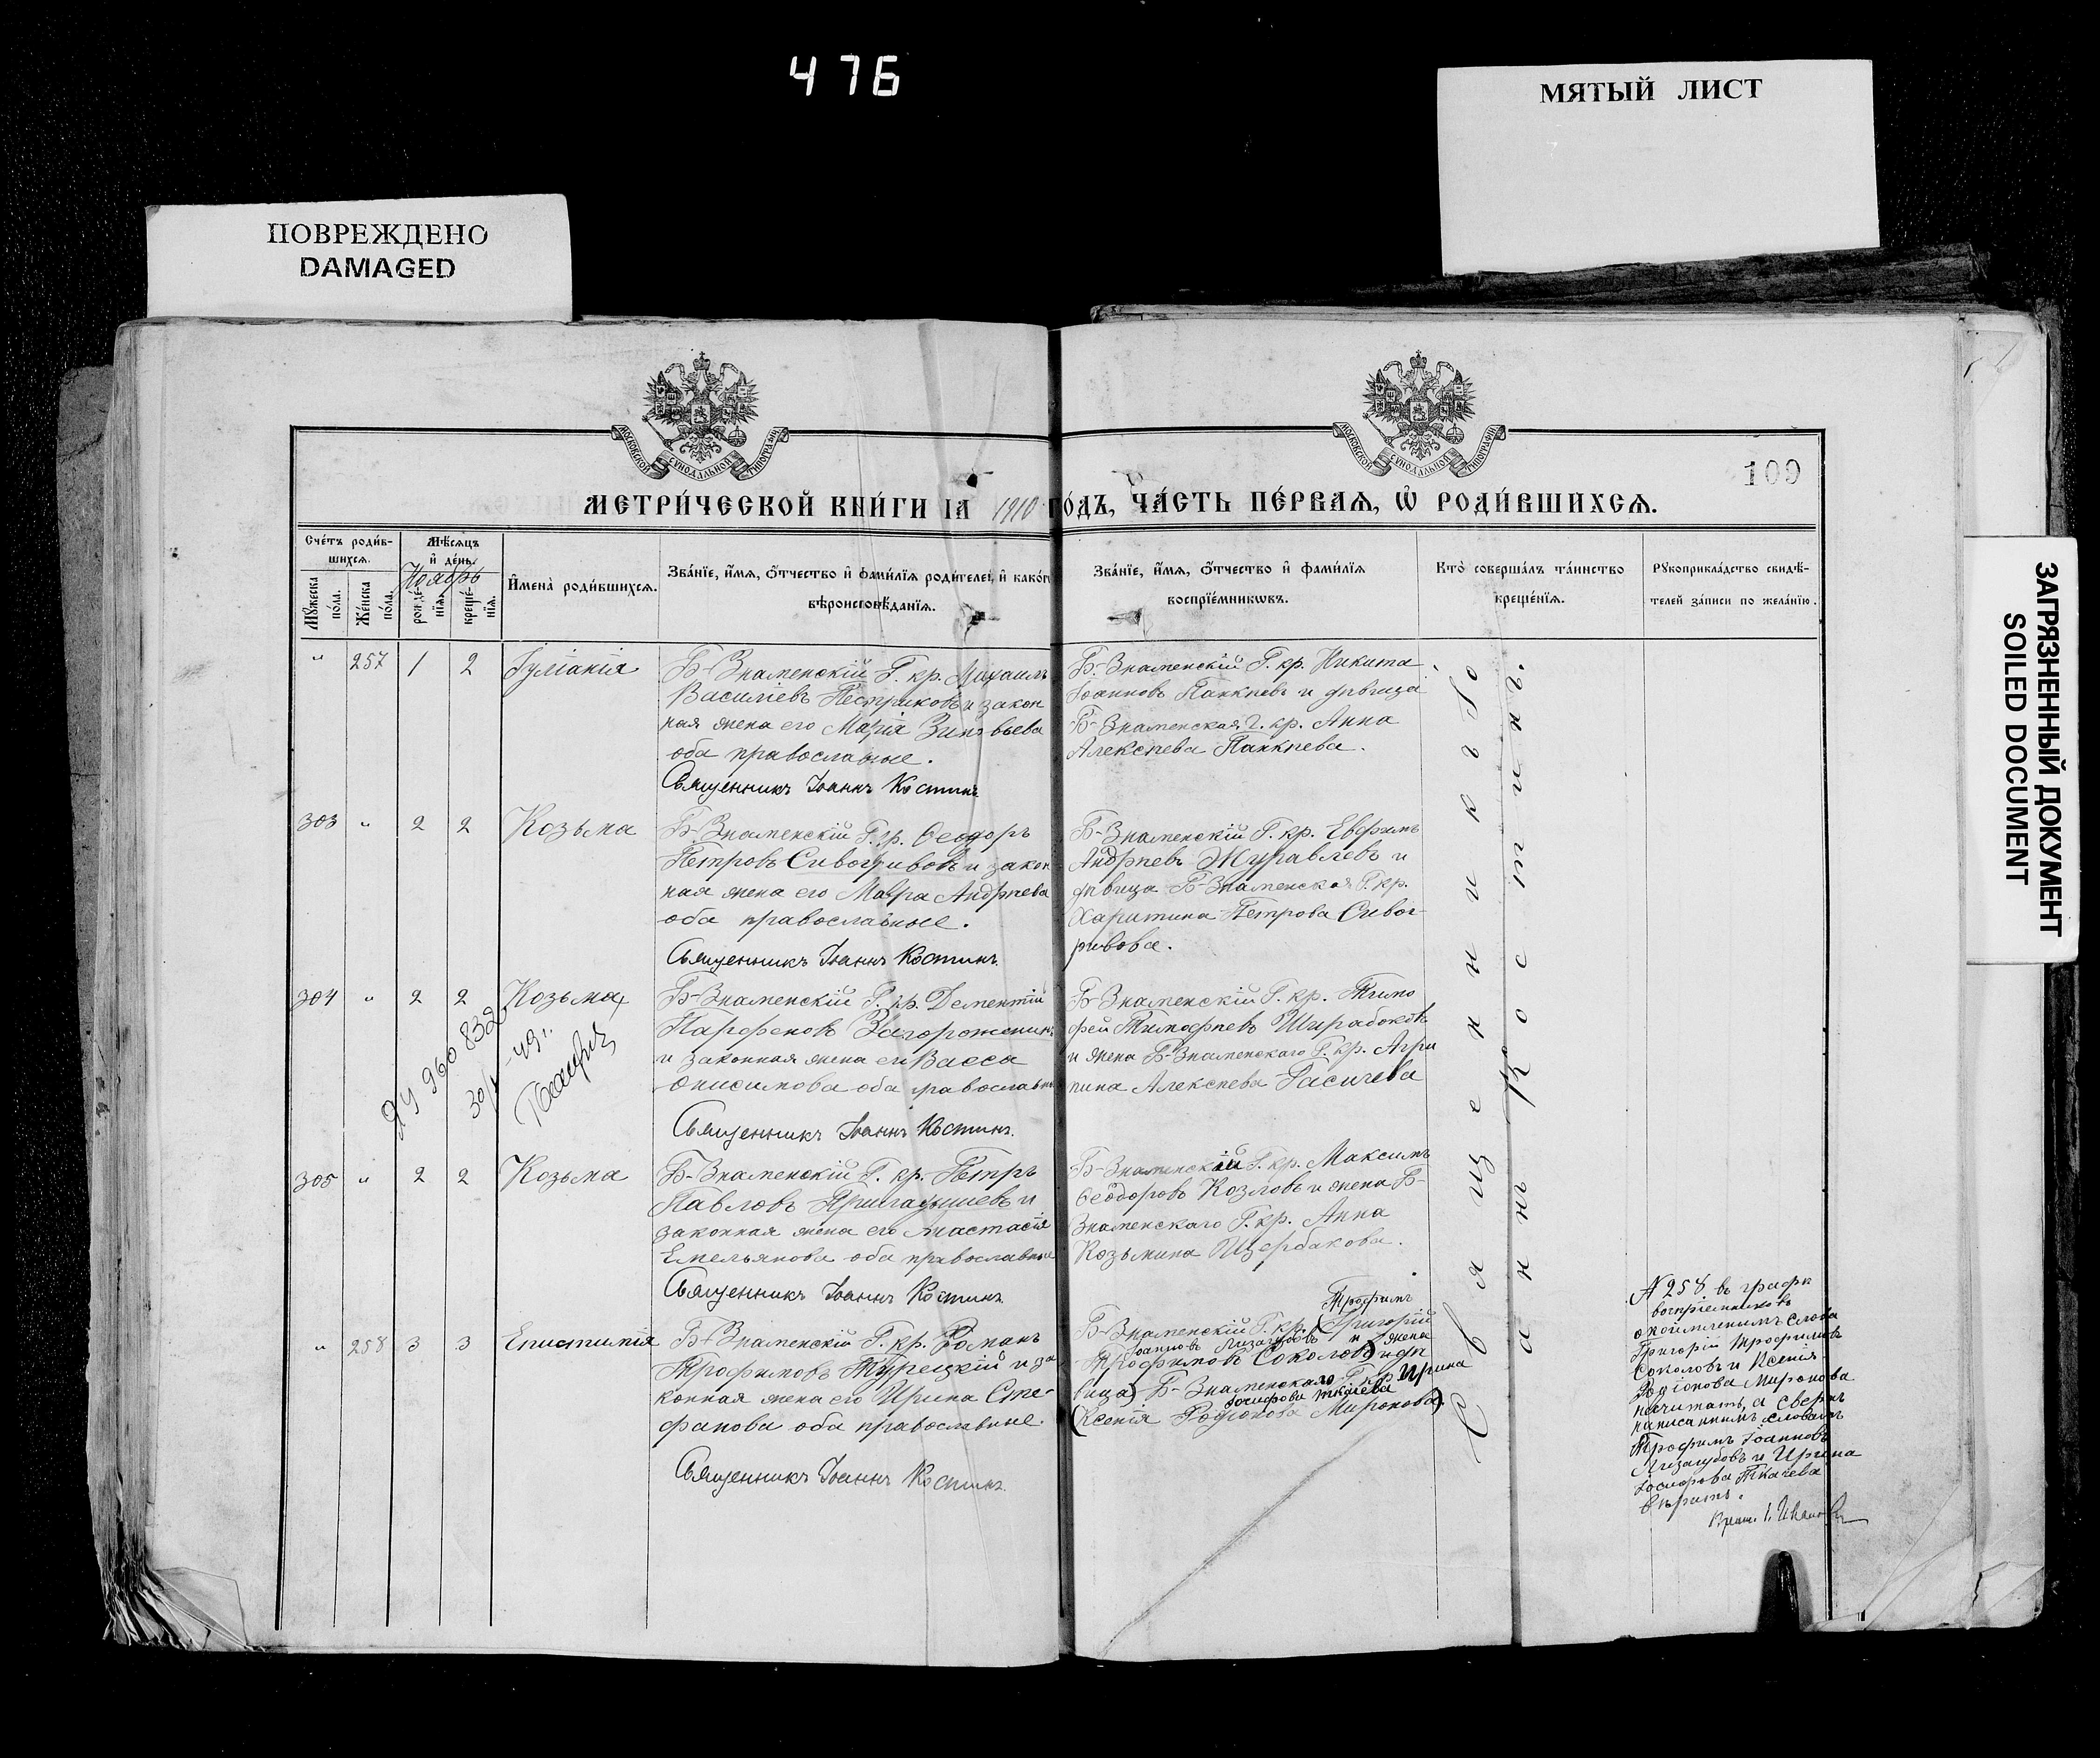 476
МЯТЫЙ ЛИСТ
ПОВРЕЖДЕНО
DAMAGED
ЗАГРЯЗНЕННЫЙ ДОКУМЕНТ
SOILED DOCUMENT
МОСКОВСКОЙ СИНОДАЛЬНОЙ ТИПОГРАФІИ
МОСКОВСКОЙ СИНОДАЛЬНОЙ ТИПОГРАФІИ
109
МЕТРИ́ЧЕСКОЙ КНИ́ГИ НА 1910 ГО́ДЪ, ЧА́СТЬ ПЕ́РВАѦ, Ѡ РОДИ́ВШИХСѦ.
Сче́тъ роди́в-
шихсѧ.
Мꙋ́жеска по́ла.
Же́нска по́ла.
Мѣ́сѧцъ
и҆ де́нь.
Ноябрь
рожде́-нїѧ.
креще́-нїѧ.
И҆мена̀ роди́вшихсѧ.
Зва́нїе, и҆́мѧ, ѻ҆́тчество и҆ фами́лїѧ роди́телей, и҆ како́гѡ
вѣроисповѣ́данїѧ.
Зва́нїе, и҆́мѧ, ѻ҆́тчество и҆ фами́лїѧ
воспрїе́мникѡвъ.
Кто̀ соверша́лъ та́инство
креще́нїѧ.
Рꙋкоприкла́дство свидѣ́-
телей за́писи по жела́нїю.
" 257 1 2 Іуліанія
Б-Знаменскій Г. кр. Михаилъ
Васильевъ Пестриковъ и закон
ная жена его Марія Зиновьева
оба православные.
Священникъ Іоаннъ Костинъ
Б-Знаменскій Г. кр. Никита
Іоанновъ Панкѣевъ и дѣвица
Б-Знаменская Г. кр. Анна
Алексѣева Панкѣева.
303 " 2 2 Козьма
Б-Знаменскій Г. кр. Ѳеодоръ
Петровъ Сивогривовъ и закон
ная жена его Мавра Андрѣева
оба православные.
Священникъ Іоаннъ Костинъ.
Б-Знаменскій Г. кр. Евфимъ
Андрѣевъ Журавлевъ и
дѣвица Б-Знаменская Г. кр.
Харитина Петрова Сивог-
ривова.
304 " 2 2 Козьма
ЯУ 960 832
Б-Знаменскій Г. кр. Дементій
Парфеновъ Загороженин
и законная жена его Васса
Онисимова оба православн
Священникъ Іоаннъ Костинъ.
Б-Знаменскій Г. кр. Тимо
фей Тимофѣевъ Ширабоковъ
и жена Б-Знаменскаго Г. кр. Агри
пина Алексѣева Гасичева
305 " 2 2 Козьма
Б-Знаменскій Г. кр. Петръ
Павловъ и
законная жена его Анастасія
Емельянова оба православные
Священникъ Іоаннъ Костинъ.
Б-Знаменскій Г. кр. Максимъ
Ѳеодоровъ Козловъ и жена Б-
Знаменскаго Г. кр. Анна
Козьмина Щербакова.
" 258 3 3 Епистимія
Б-Знаменскій Г. кр. Романъ
Трофимовъ Турецкій и за
конная жена его Ирина Сте-
фанова оба православные.
Священникъ Іоаннъ Костинъ.
Трофимъ
Б-Знаменскій Г. кр. (Григорій
Іоанновъ Лизагубовъ и жена
Трофимовъ Соколовъ) и дѣ
вица) Б-Знаменскаго Г. кр. Ирина
Іосифова Ткачева
(Ксенія Родіонова Миронова).
Священникъ Іо
аннъ Костинъ.
№ 258 въ графѣ
воспріемниковъ
окоймленнымъ слова
Григорій Трофимовъ
Соколовъ и Ксенія
Родіонова Миронова
нечитать, а сверхъ
написаннымъ словамъ
Трофимъ Іоанновъ
Лизагубовъ и Ирина
Іосифова Ткачева
вѣрить.